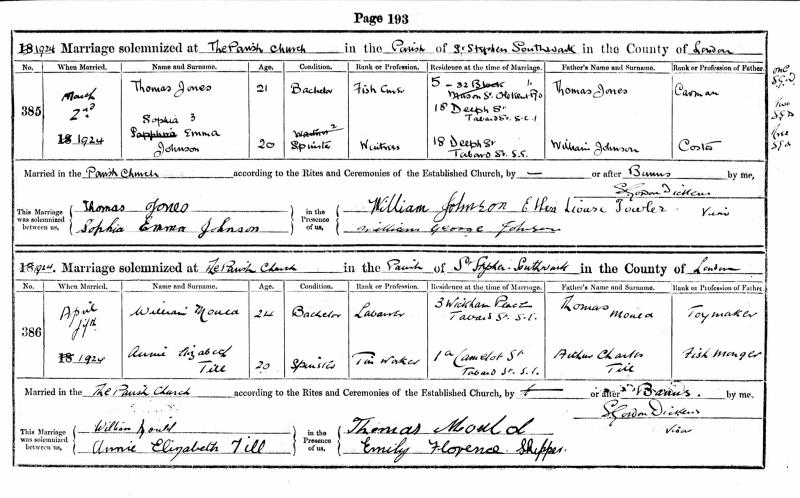 Page 193
18 1924 Marriage solemnized at The Parish Church in the Parish of St Stephen Southwark in the County of London
No. When Married. Name and Surname. Age. Condition. Rank or Profession. Residence at the time of Marriage. Father's Name and Surname. Rank or Profession of Father.
385 March 2nd 18 1924 Thomas Jones 21 Bachelor Fish 5 - 32 Block Mason St Old Kent Rd 18 Deeph St Tabard St. S.E.1 Thomas Jones Carman
Sophia 3 Sapphria Emma Johnson 20 2 Spinster Waitress 18 Deeph St Tabard St. S.E. William Johnson Coster
Married in the Parish Church according to the Rites and Ceremonies of the Established Church, by — or after Banns by me,
S Gordon Dickens
Vicar
This Marriage was solemnized between us, Thomas Jones Sophia Emma Johnson in the Presence of us, William Johnson Ellen Louise Fowler William George Johnson
18 1924. Marriage solemnized at The Parish Church in the Parish of St Stephen Southwark in the County of London
No. When Married. Name and Surname. Age. Condition. Rank or Profession. Residence at the time of Marriage. Father's Name and Surname. Rank or Profession of Father.
386 April fifth 18 1924 William Mould 24 Bachelor Labourer 3 Wickham Place Tabard St. S.E. Thomas Mould Toymaker
Annie Elizabeth Till 20 Spinster Tin Worker 1a Camelot St Tabard St. S.E. Arthur Charles Till Fish Monger
Married in the The Parish Church according to the Rites and Ceremonies of the Established Church, by — or after Banns. by me.
S Gordon Dickens
Vicar
This Marriage was solemnized between us, William Mould Annie Elizabeth Till in the Presence of us, Thomas Mould Emily Florence Skipper.